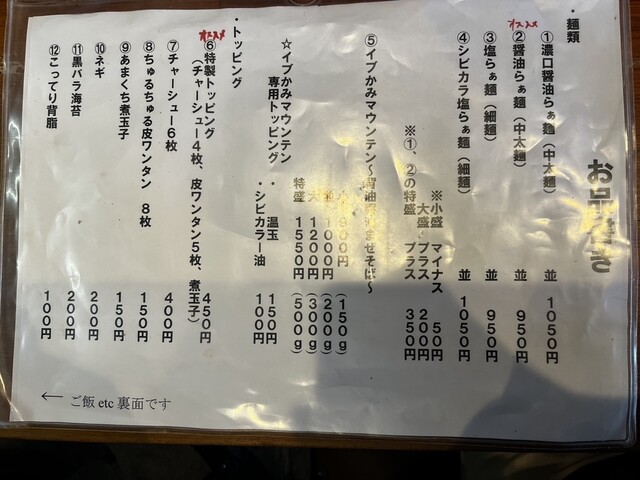 お品書き
・麺類
①濃口醤油らぁ麺(中太麺) 並 1050円
オススメ
②醤油らぁ麺(中太麺) 並 950円
③塩らぁ麺(細麺) 並 950円
④シビカラ塩らぁ麺(細麺) 並 1050円
※小盛 マイナス 50円
大盛 プラス 200円
※①、②の特盛 プラス 350円
⑤イブかみマウンテン～醤油
まぜそば～
小 900円(150g)
並 1000円(200g)
大 1200円(300g)
特盛 1550円(500g)
☆イブかみマウンテン
専用トッピング
・温玉 150円
・シビカラー油 100円
・トッピング
オススメ
⑥特製トッピング 450円
(チャーシュー4枚、皮ワンタン5枚、煮玉子)
⑦チャーシュー6枚 400円
⑧ちゅるちゅる皮ワンタン 8枚 150円
⑨あまくち煮玉子 150円
⑩ネギ 200円
⑪黒バラ海苔 200円
⑫こってり背脂 100円
← ご飯 etc 裏面です